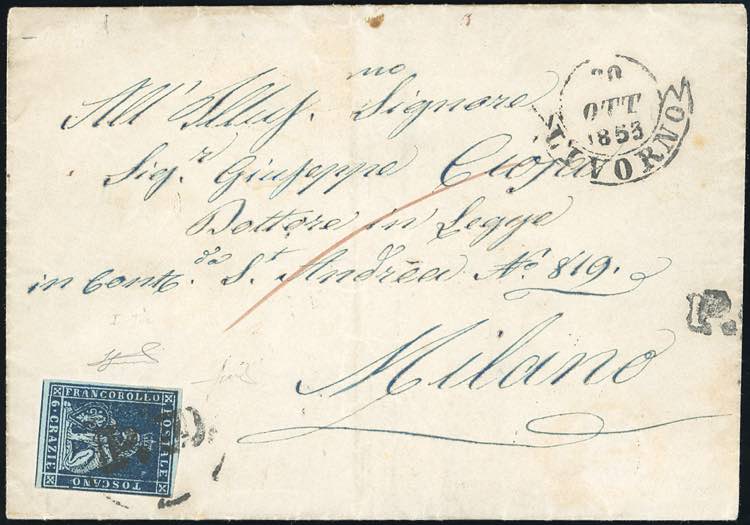 All' Illus.mo Signore
Sig.r Giuseppe
Dottore in Legge
in Cont.da S.t Andrea No. 819.
Milano
20
OTT
1853
LIVORNO
P.
FRANCOBOLLO
POSTALE
TOSCANO
6 · CRAZIE
P.D